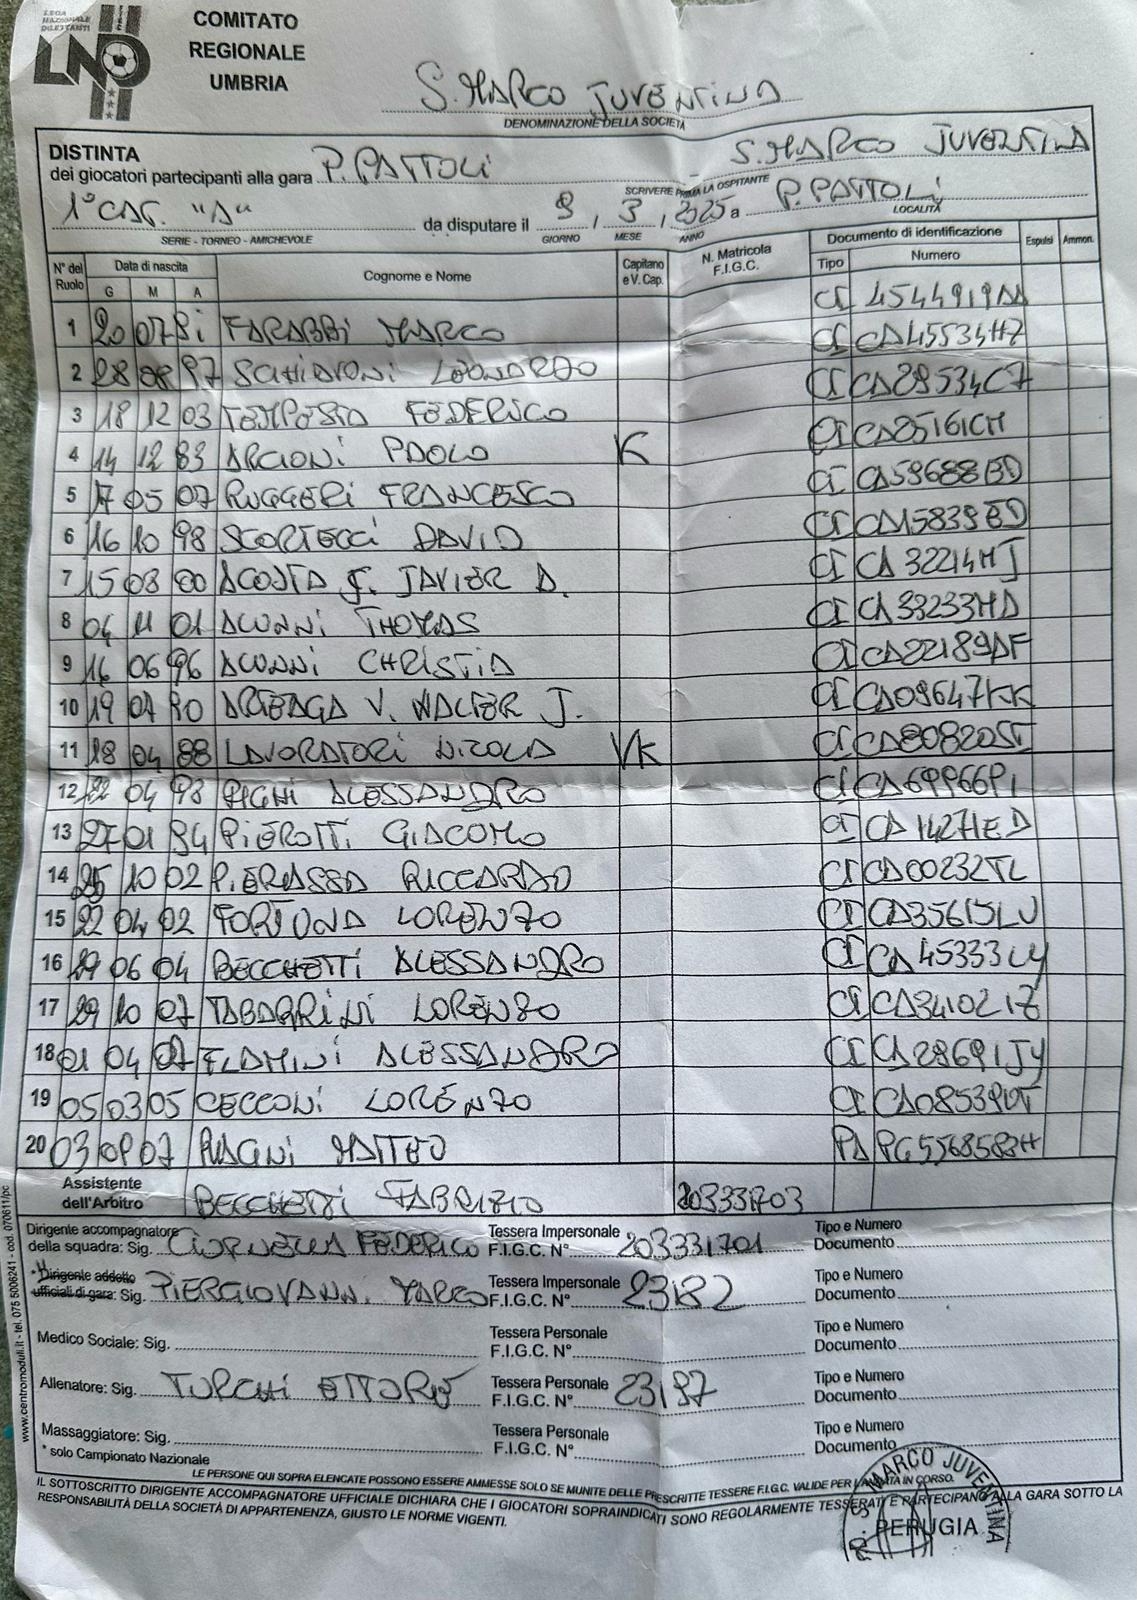 LEGA NAZIONALE DILETTANTI
LND
COMITATO
REGIONALE
UMBRIA
S. MARCO JUVENTINA
DENOMINAZIONE DELLA SOCIETÀ
DISTINTA
dei giocatori partecipanti alla gara P. PATTOLI - S. MARCO JUVENTINA
SCRIVERE PRIMA LA OSPITANTE
1° CAT. "A" da disputare il 9 / 3 / 2025 a P. PATTOLI
SERIE - TORNEO - AMICHEVOLE GIORNO MESE ANNO LOCALITÀ
N° del Ruolo Data di nascita G M A Cognome e Nome Capitano e V. Cap. N. Matricola F.I.G.C. Documento di identificazione Tipo Numero Espulsi Ammon.
1 20 07 81 FARABBI MARCO CI 4544919AA
2 28 08 97 SCHIAVONI LEONARDO CI CA45534HZ
3 18 12 03 TEMPESTA FEDERICO CI CA29534C7
4 14 12 83 ARCIONI PAOLO K CI CA25161CH
5 17 05 07 RUGGERI FRANCESCO CI CA59688BD
6 16 10 98 SCORTECCI DAVID CI CA15839BD
7 15 03 00 ACOSTA F. JAVIER A. CI CA32214HJ
8 04 11 01 ACUNNI THOMAS CI CA33233HA
9 16 06 96 ACUNNI CHRISTIA CI CA22189AF
10 19 07 90 ARTEAGA V. WALTER J. CI CA09647KK
11 18 04 88 LAVORATORI NICOLA VK CI CA80820ST
12 22 04 93 PIGNI ALESSANDRO CI CA69966PI
13 27 01 94 PIEROTTI GIACOMO CI CA14271ED
14 25 10 02 PIERASSA RICCARDO CI CA00232TL
15 22 04 02 FORTUNA LORENZO CI CA35615LU
16 29 06 04 BECCHETTI ALESSANDRO CI CA45333LY
17 29 10 07 TABARRINI LORENZO CI CA34102IZ
18 01 04 07 FLAMINI ALESSANDRO CI CA28691JY
19 05 03 05 CECCONI LORENZO CI
20 03 09 07 MATTEO PA PG5568583H
Assistente dell'Arbitro BECCHETTI FABRIZIO
Dirigente accompagnatore della squadra: Sig. CIORNELLA FEDERICO Tessera Impersonale F.I.G.C. N° 203331701 Tipo e Numero Documento
* Dirigente addetto ufficiali di gara: Sig. PIERGIOVANNI MARCO Tessera Impersonale F.I.G.C. N° 23182 Tipo e Numero Documento
Medico Sociale: Sig. Tessera Personale F.I.G.C. N° Tipo e Numero Documento
Allenatore: Sig. TURCHI ETTORE Tessera Personale F.I.G.C. N° 23197 Tipo e Numero Documento
Massaggiatore: Sig. Tessera Personale F.I.G.C. N° Tipo e Numero Documento
* solo Campionato Nazionale
LE PERSONE QUI SOPRA ELENCATE POSSONO ESSERE AMMESSE SOLO SE MUNITE DELLE PRESCRITTE TESSERE F.I.G.C. VALIDE PER L'ANNATA IN CORSO.
IL SOTTOSCRITTO DIRIGENTE ACCOMPAGNATORE UFFICIALE DICHIARA CHE I GIOCATORI SOPRAINDICATI SONO REGOLARMENTE TESSERATI E PARTECIPANO ALLA GARA SOTTO LA
RESPONSABILITÀ DELLA SOCIETÀ DI APPARTENENZA, GIUSTO LE NORME VIGENTI.
S. MARCO JUVENTINA
PERUGIA
www.centromoduli.it - tel. 075 5006241 - cod. 070611/pc